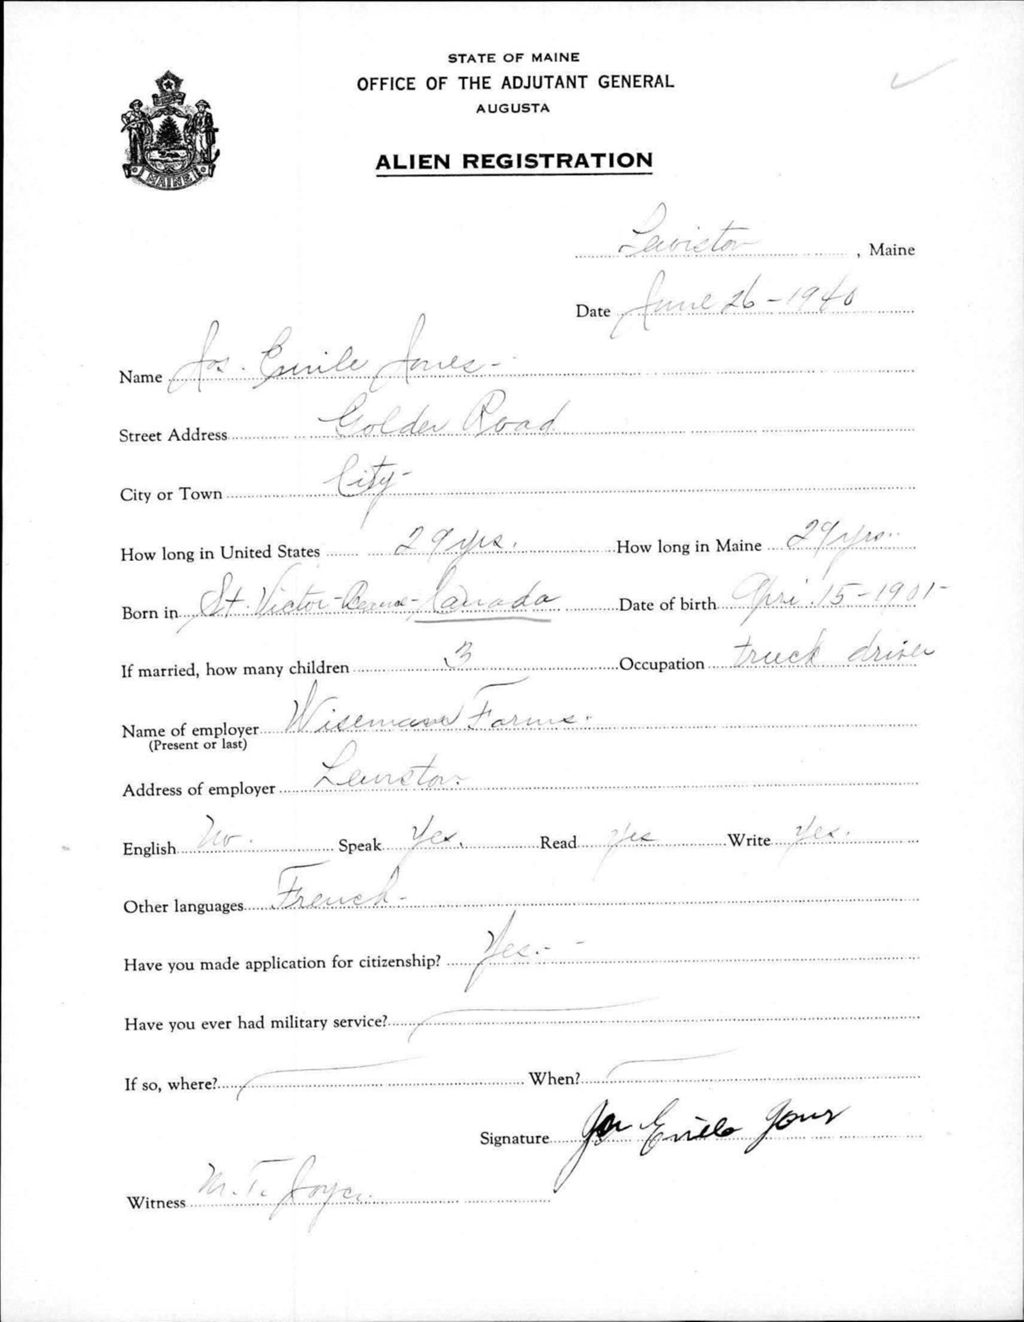 STATE OF MAINE
OFFICE OF THE ADJUTANT GENERAL
AUGUSTA
MAINE
ALIEN REGISTRATION
Lewiston, Maine
Date June 26-1940
Name Jos. Emile Jones-
Street Address Golder Road
City or Town City-
How long in United States 29 yrs. How long in Maine 29 yrs.
Born in St. Victor- -Canada Date of birth Apri. 15-1901-
If married, how many children 3 Occupation truck driver
Name of employer Wiseman Farms.
(Present or last)
Address of employer Lewiston.
English No. Speak Yes. Read Yes Write Yes.
Other languages French-
Have you made application for citizenship? Yes.- -
Have you ever had military service? —
If so, where? — When? —
Signature Jos Emile Jones
Witness M. T. Joyce.